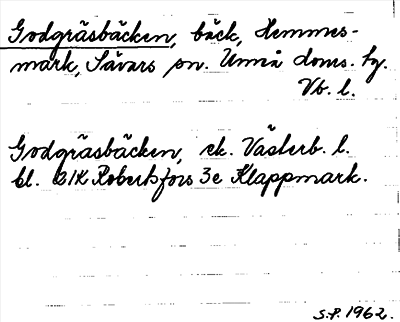 Godgräsbäcken, bäck, Hemmes-
mark, Sävars sn. Umeå doms. hg.
Vb. l.
Godgräsbäcken, ek. Västerb. l.
bl. 21K Robertsfors 3e Klappmark.
S.P. 1962.